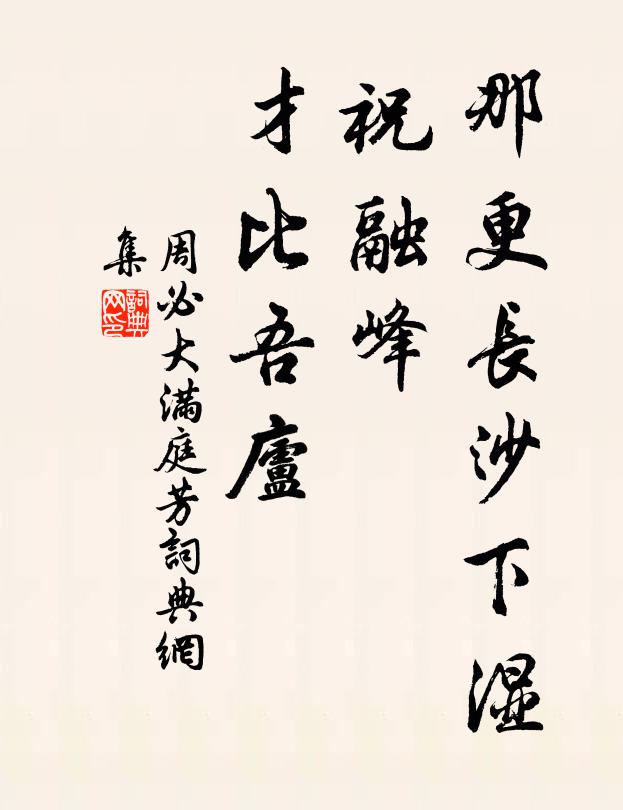 那更長沙下濕
祝融峰
才比吾廬
周必大滿庭芳詞典網
集
詞典
网印